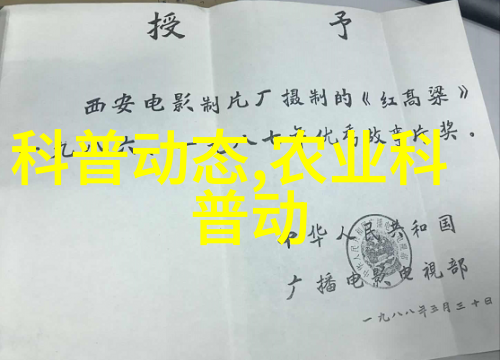 授予
西安电影制片厂摄制的《红高粱》
一九八六、一九八七年优秀故事片奖。
科普动态,农业科
普动
中华人民共和国
广播电影电视部
一九八八年三月三十日